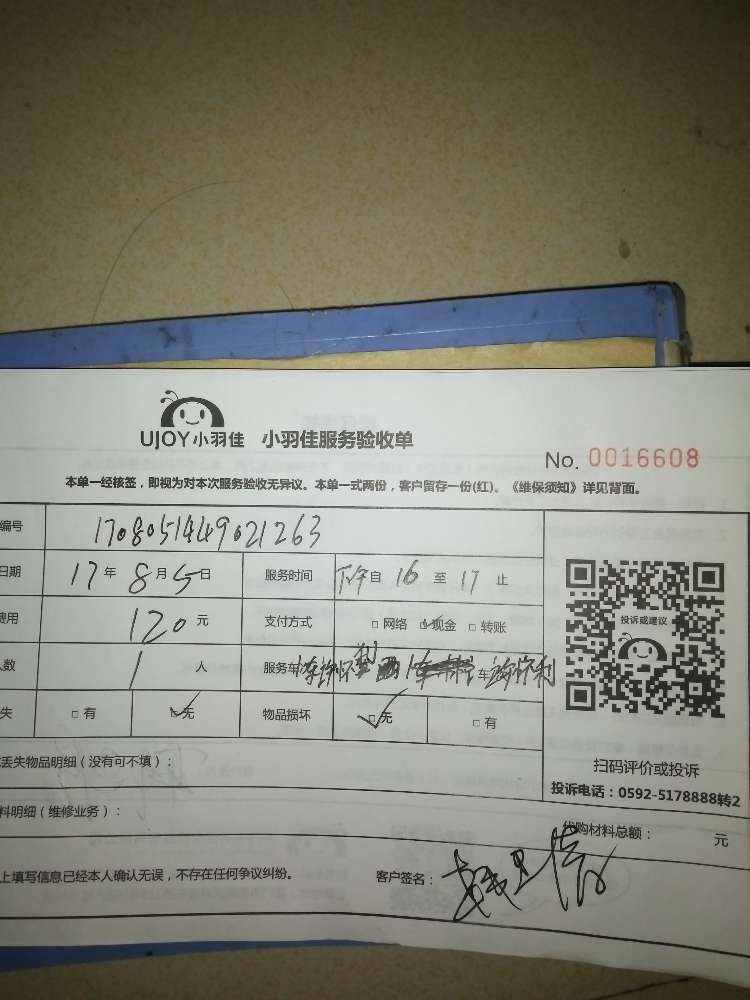 UJOY小羽佳 小羽佳服务验收单
No. 0016608
本单一经核签，即视为对本次服务验收无异议。本单一式两份，客户留存一份(红)。《维保须知》详见背面。
编号 1708051449021263
日期 17年 8月5日 服务时间 下午自 16 至 17 止
费用 120元 支付方式 □网络 □现金 □转账
人数 1 人 服务车次 车
失 □有 □无 物品损坏 □无 □有
投诉或建议
丢失物品明细（没有可不填）：
扫码评价或投诉
投诉电话：0592-5178888转2
料明细（维修业务）：
代购材料总额： 元
上填写信息已经本人确认无误，不存在任何争议纠纷。 客户签名：